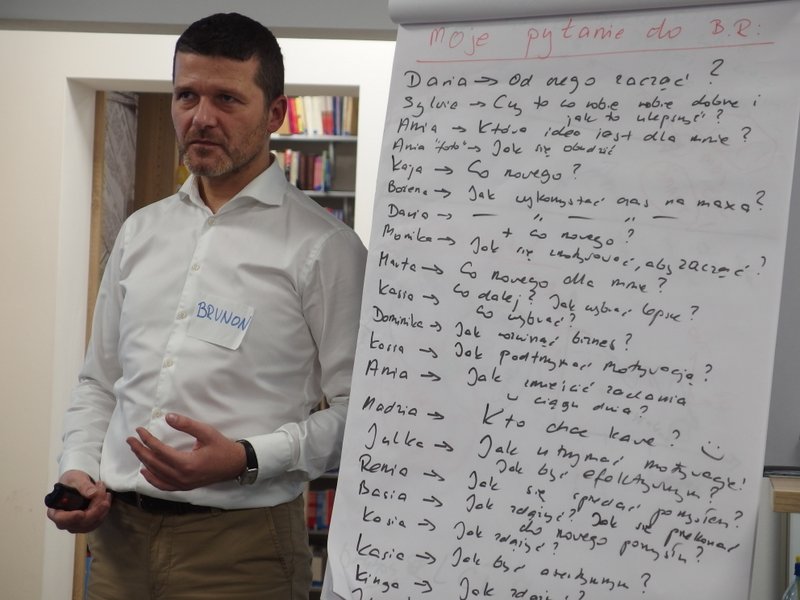 Moje pytanie do B.R:
Daria → Od czego zacząć?
Sylwia → Czy to co robię robię dobrze i
jak to ulepszyć?
Ania → Która idea jest dla mnie?
Ania "foto" → Jak się obudzić
Kaja → Co nowego?
Bożena → Jak wykorzystać czas na maxa?
Daria → — " — " —
+ co nowego?
Monika → Jak się zmotywować, aby zacząć?
Marta → Co nowego dla mnie?
Kasia → Co dalej? Jak wybrać lepsze?
Co wybrać?
Dominika → Jak rozwinąć biznes?
Kasia → Jak podtrzymać motywację?
Ania → Jak zmieścić zadania
w ciągu dnia?
Madzia → Kto chce kawę? :)
Julka → Jak utrzymać motywację!
Jak być efektywnym?
Renia → Jak się sprzedać pomysłem?
Basia → Jak zdążyć? Jak się przekonać
do nowego pomysłu?
Kasia → Jak zdążyć?
Kasia → Jak być kreatywnym?
Kinga → Jak zdążyć?
BRUNON